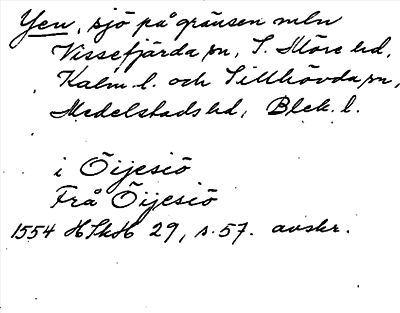 Yen, sjö på gränsen mln
Vissefjärda sn, S. Möre hd,
Kalm. l. och Tillhövda sn,
Medelstads hd, Blek. l.
i Öijesiö
Frå Öijesiö
1554 HSkH 29, s. 57. avskr.